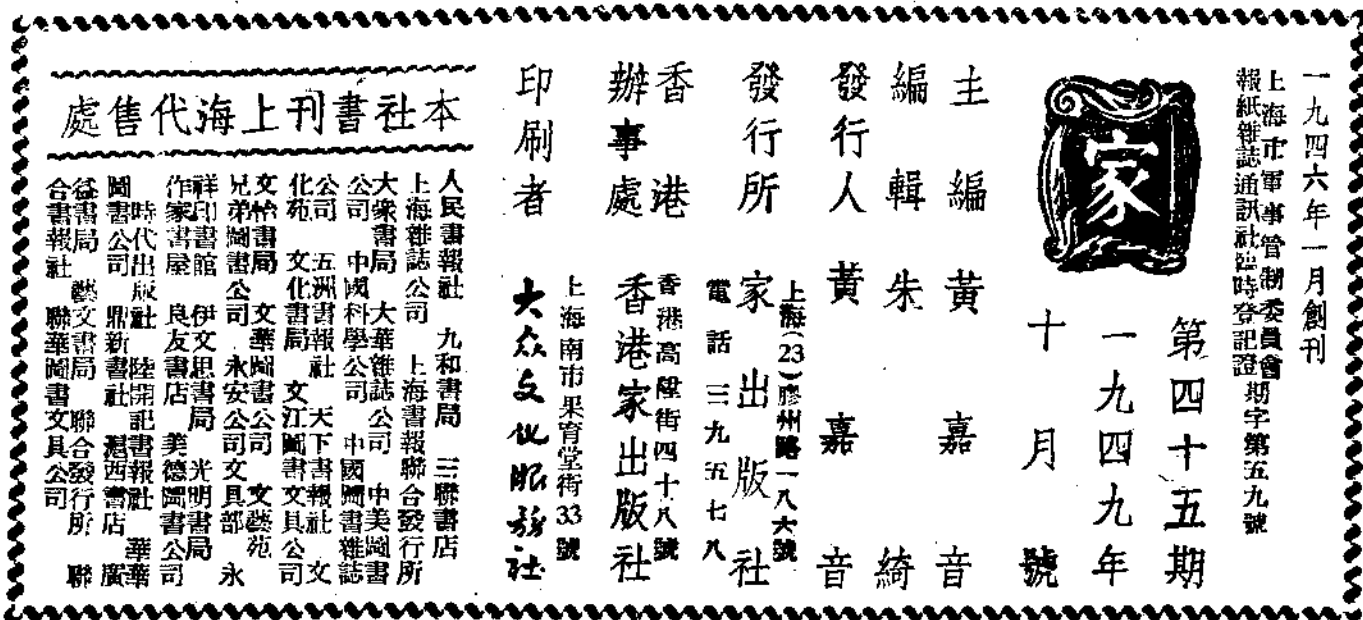 一九四六年一月創刊
上海市軍事管制委員會
報紙雜誌通訊社臨時登記證期字第五九號
家
第四十五期
一九四九年
十月號
主編 黃嘉音
編輯 朱綺
發行人 黃嘉音
發行所 家出版社
上海(23)膠州路一八六號
電話 三九五七八
香港辦事處 香港家出版社
香港高陞街四十八號
印刷者 大众文化服務社
上海南市果育堂街33號
本社書刊上海代售處
人民書報社 九和書局 三聯書店
上海雜誌公司 上海書報聯合發行所
大衆書局 大華雜誌公司 中美圖書
公司 中國科學公司 中國圖書雜誌
公司 五洲書報社 天下書報社 文
化苑 文化書局 文江圖書文具公司
文怡書局 文華圖書公司 文藝苑
兄弟圖書公司 永安公司文具部 永
祥印書館 伊文思書局 光明書局
作家書屋 良友書店 美德圖書公司
時代出版社 陸開記書報社 華華
圖書公司 鼎新書社 滬西書店 廣
益書局 藝文書局 聯合發行所 聯
合書報社 聯華圖書文具公司